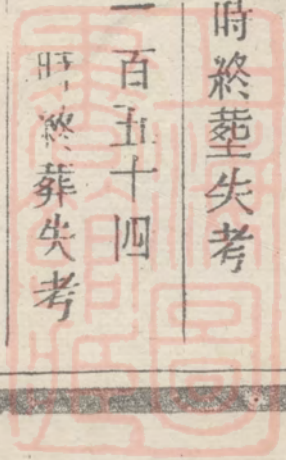 時終塟失考
一百五十四
時終葬失考